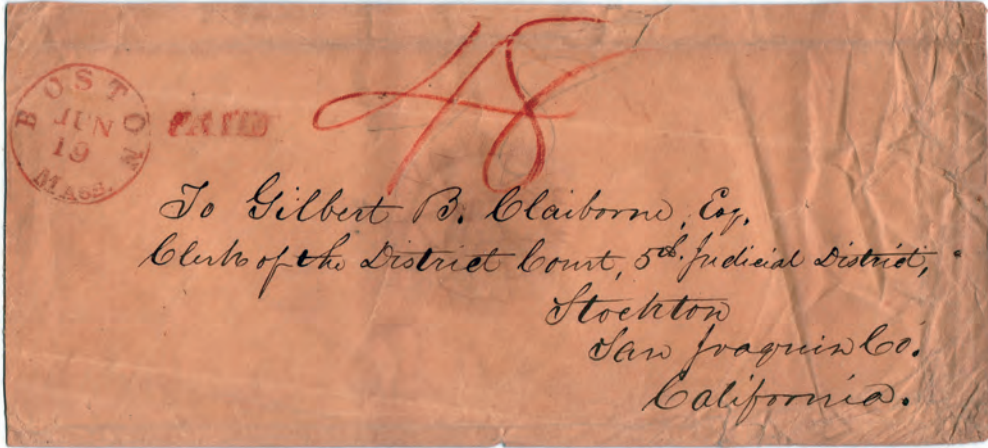 48
BOSTON
JUN
19
MASS.
PAID
To Gilbert B. Claiborne, Esq.
Clerk of the District Court, 5th. Judicial District,
Stockton
San Joaquin Co.
California.